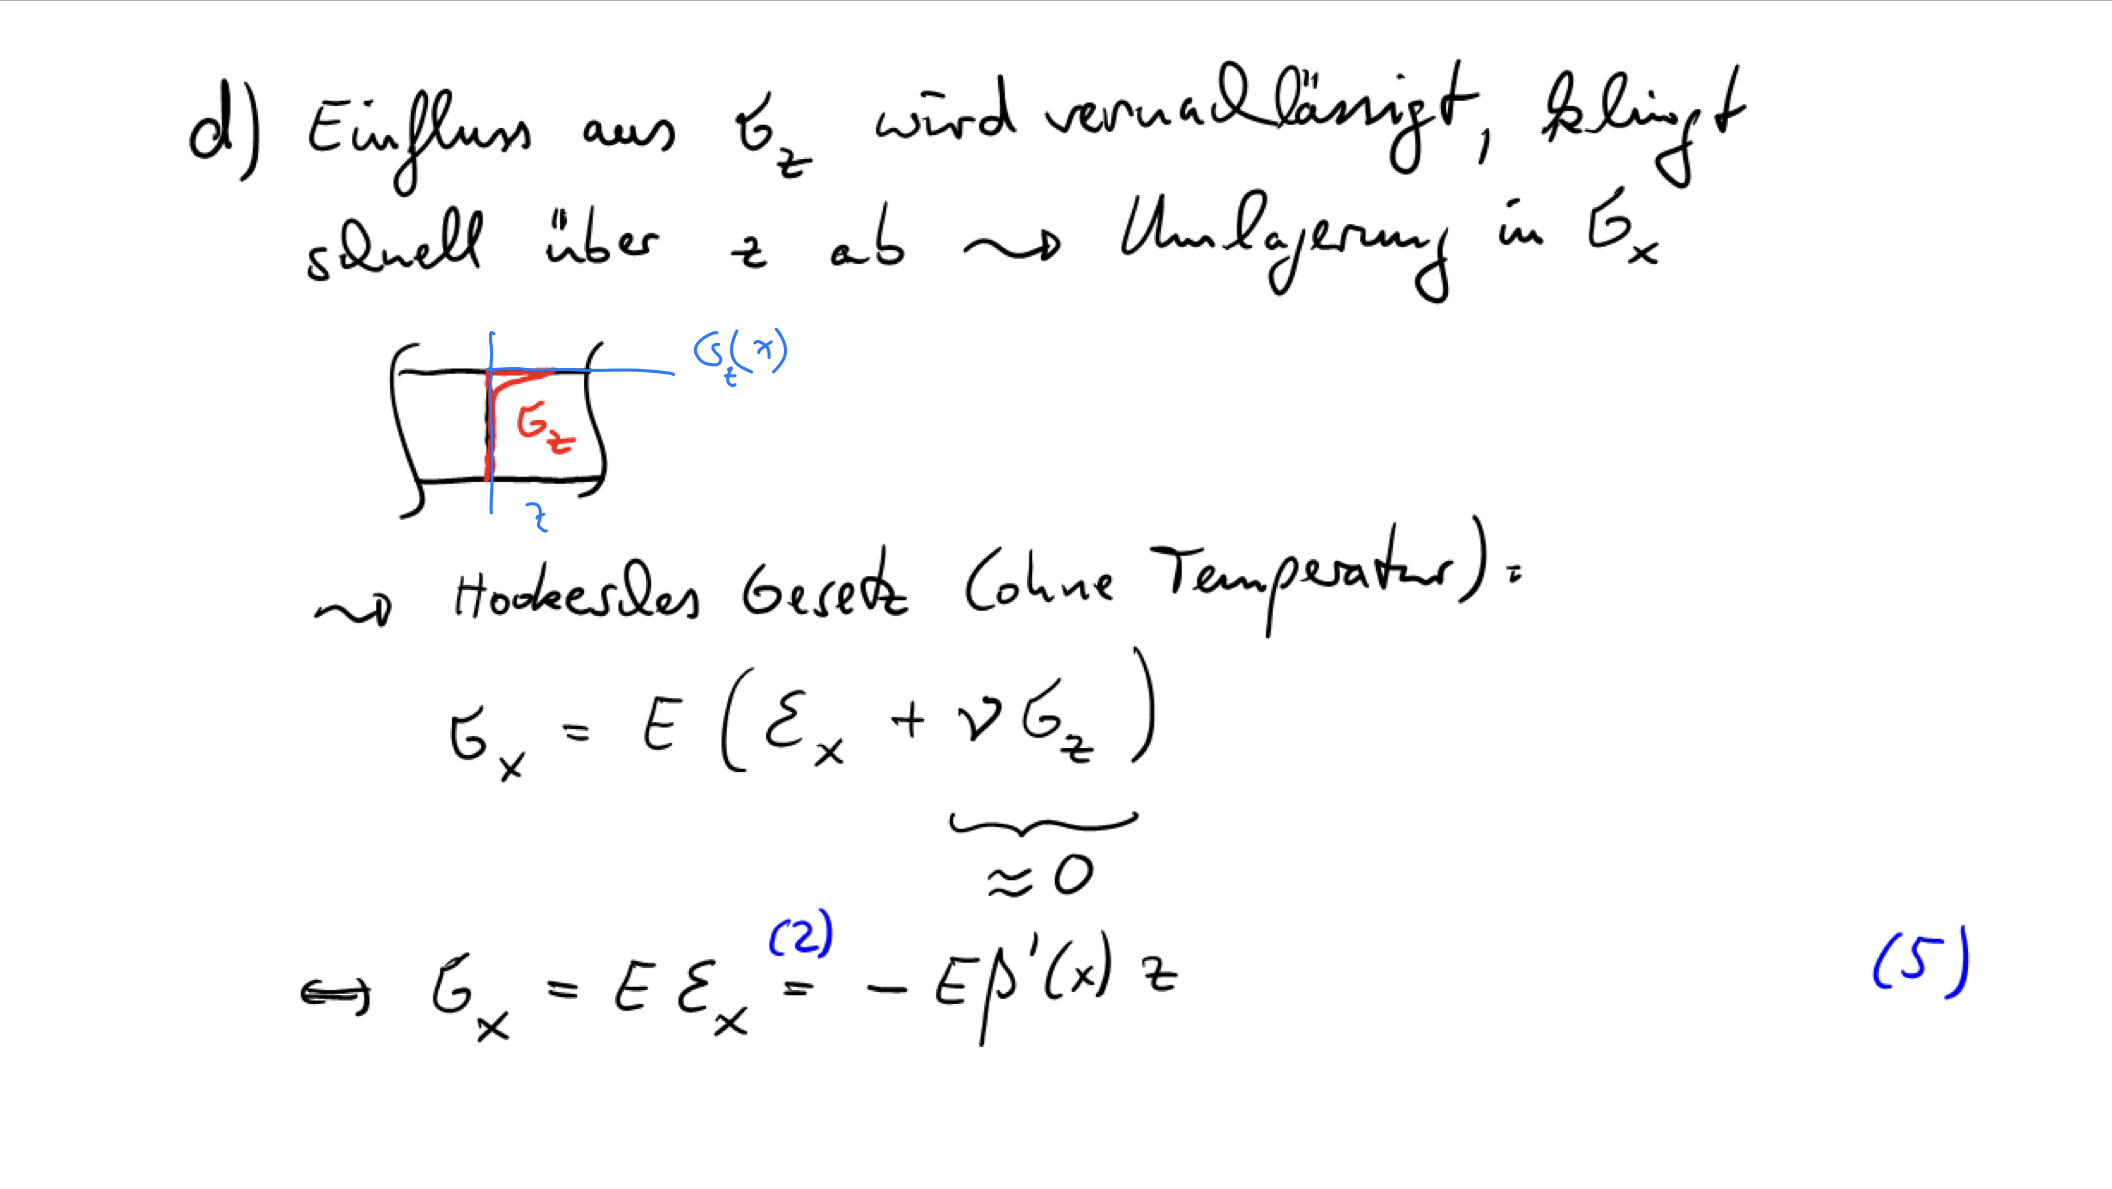 d) Einfluss aus σ_z wird vernachlässigt, klingt
schnell über z ab ⇝ Umlagerung in σ_x
σ_z(x)
σ_z
z
⇝ Hookesches Gesetz (ohne Temperatur):
σ_x = E (ε_x + ν σ_z)
≈ 0
(2)
⇔ σ_x = E ε_x = - E β'(x) z (5)